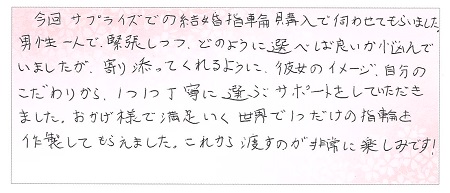 今回サプライズでの結婚指輪購入で伺わせてもらいました。
男性一人で、緊張しつつ、どのように選べば良いか悩んで
いましたが、寄り添ってくれるように、彼女のイメージ、自分の
こだわりから、1つ1つ丁寧に選ぶサポートをしていただき
ました。おかげ様で満足いく世界で1つだけの指輪を
作製してもらえました。これから渡すのが非常に楽しみです!